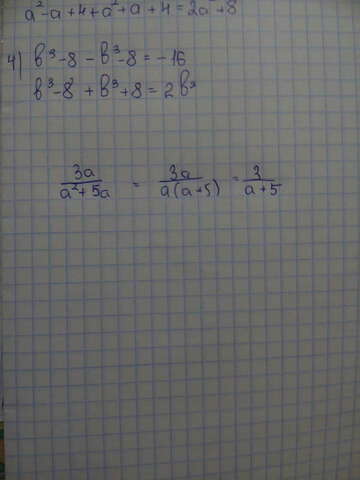 a²-a+4+a²+a+4=2a²+8
4) b³-8-b³-8=-16
b³-8+b³+8=2b³
3a/a²+5a = 3a/a(a+5) = 3/a+5